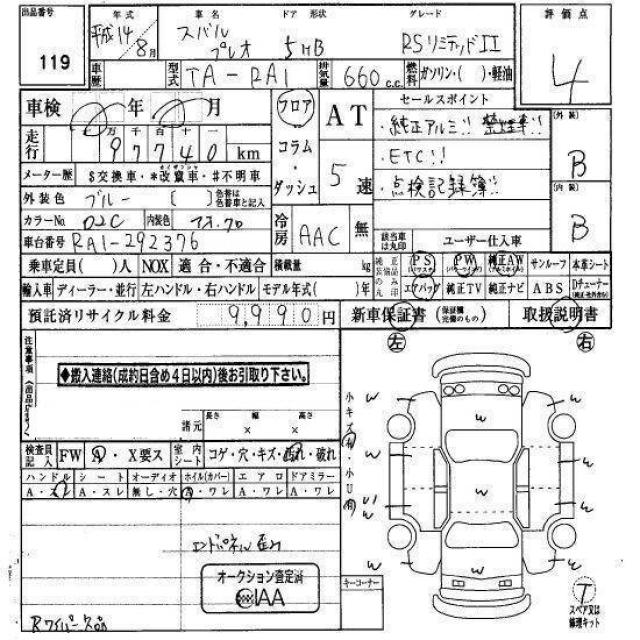 出品番号 119
年式 平成14/8月
車名 スバル プレオ
ドア 形状 5HB
グレード RSリミテッドII
評価点 4
車歴
型式 TA-RA1
排気量 660c.c.
燃料 ガソリン・( )・軽油
車検 年 月
フロア コラム・ダッシュ
AT 5速
セールスポイント
・純正アルミ!! 禁煙車!!
・ETC!!
・点検記録簿!!
(外装) B
走行 万千百十一 97740 km
メーター歴 $交換車・*改竄車・#不明車
外装色 ブルー [ ] 色替は色替車と記入
(内装) B
カラーNo. 02C 内装色
冷房 AAC 無
車台番号 RA1-292376
該当車は丸印 ユーザー仕入車
乗車定員( )人 NOX 適合・不適合 積載量 kg
純正装備品のみ丸印 PS PW 純正AW サンルーフ 本革シート
輸入車 ディーラー・並行 左ハンドル・右ハンドル モデル年式( )年
エアバッグ 純正TV 純正ナビ ABS Dチューナー
預託済リサイクル料金 9,990円
新車保証書(保証欄完備のもの) 取扱説明書
注意事項
左 右
◆搬入連絡(成約日含め4日以内)後お引取り下さい。
諸元 長さ × 幅 × 高さ
小キズ有・小U有
検査員記入 FW A・X要ス 室内シート コゲ・穴・キズ・汚れ・破れ
ハンドル シート オーディオ ホイル(カバー) エアロ ドアミラー
A・スレ A・スレ 無し・穴 A・ワレ A・ワレ A・ワレ
W W W
W W
U1 W W W
W W W
エンドパネル歪み
オークション査定済
IAA
キーコーナー
T
スペア又は修理キット
Rワイパー欠品